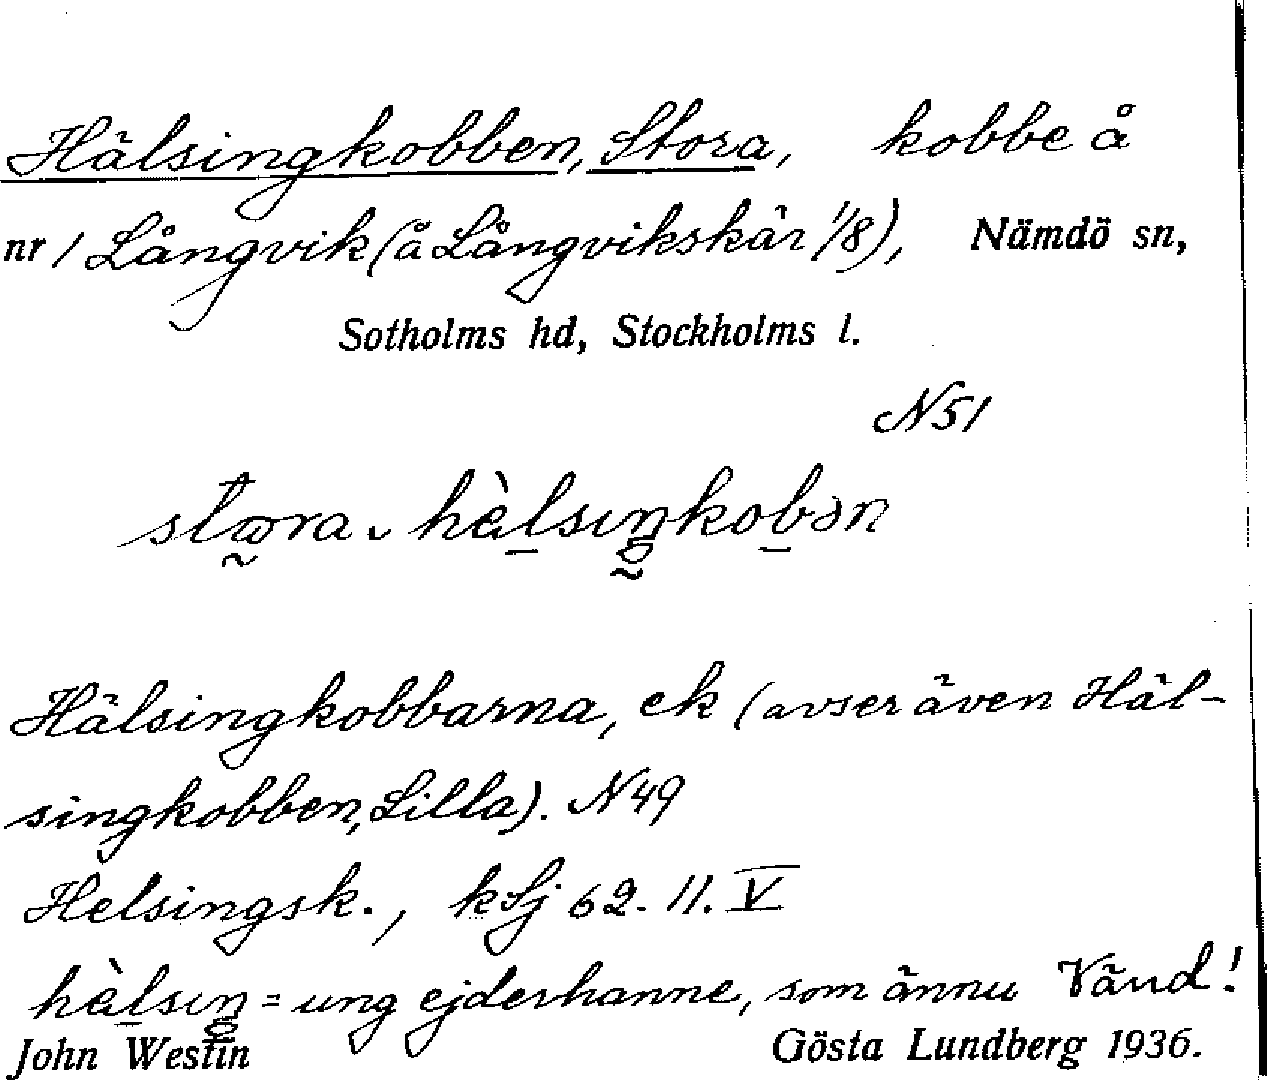 Hälsingkobben, Stora, kobbe å
nr 1 Långvik (å Långvikskär 1/8), Nämdö sn,
Sotholms hd, Stockholms l.
N51
hälsıŋkobən
Hälsingkobbarna, ek (avser även Häl-
singkobben, Lilla). N49
Helsingsk., kSj 62. 11. V
hàlsıŋ = ung ejderhanne, som ännu Vänd!
John Westin Gösta Lundberg 1936.